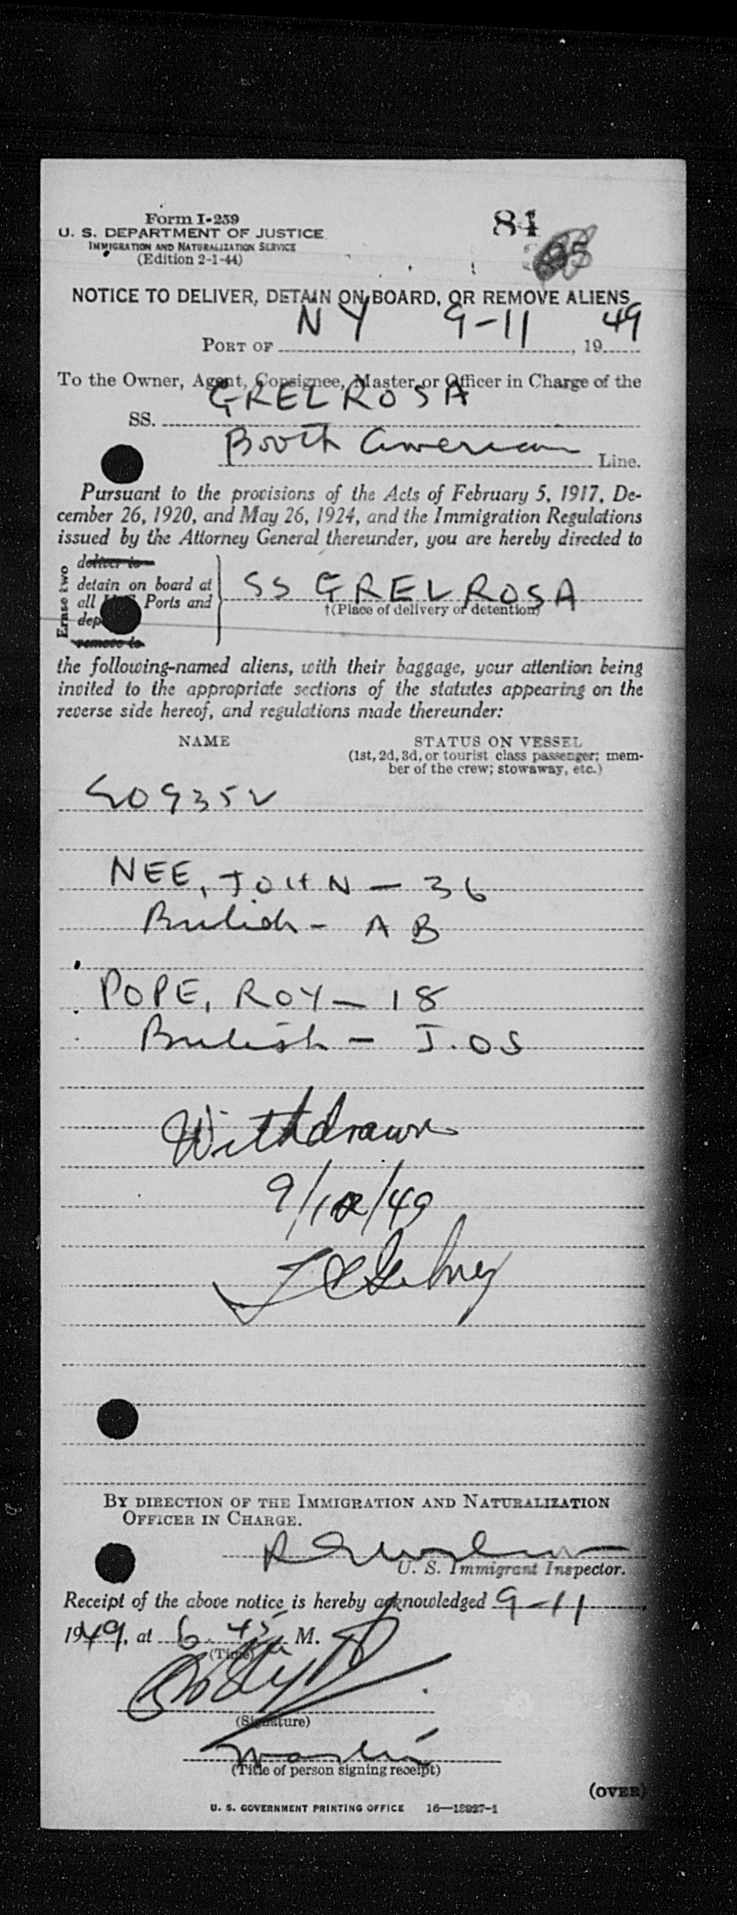 Form I-259
84
U. S. DEPARTMENT OF JUSTICE
IMMIGRATION AND NATURALIZATION SERVICE
(Edition 2-1-44)
95
NOTICE TO DELIVER, DETAIN ON BOARD, OR REMOVE ALIENS
PORT OF N Y 9-11, 1949
To the Owner, Agent, Consignee, Master or Officer in Charge of the
SS. GRELROSA
Booth American Line.
Pursuant to the provisions of the Acts of February 5, 1917, De-
cember 26, 1920, and May 26, 1924, and the Immigration Regulations
issued by the Attorney General thereunder, you are hereby directed to
Erase two
deliver to
detain on board at
all Ports and
dep
remove to
SS GRELROSA
†(Place of delivery or detention)
the following-named aliens, with their baggage, your attention being
invited to the appropriate sections of the statutes appearing on the
reverse side hereof, and regulations made thereunder:
NAME STATUS ON VESSEL
(1st, 2d, 3d, or tourist class passenger; mem-
ber of the crew; stowaway, etc.)
NEE, JOHN - 36
British - A B
POPE, ROY - 18
British - J.OS
Withdrawn
9/12/49
BY DIRECTION OF THE IMMIGRATION AND NATURALIZATION
OFFICER IN CHARGE.
U. S. Immigrant Inspector.
Receipt of the above notice is hereby acknowledged 9-11,
1949, at 6.45 M.
(Time)
(Signature)
(Title of person signing receipt)
(OVER)
U. S. GOVERNMENT PRINTING OFFICE 16—18927-1